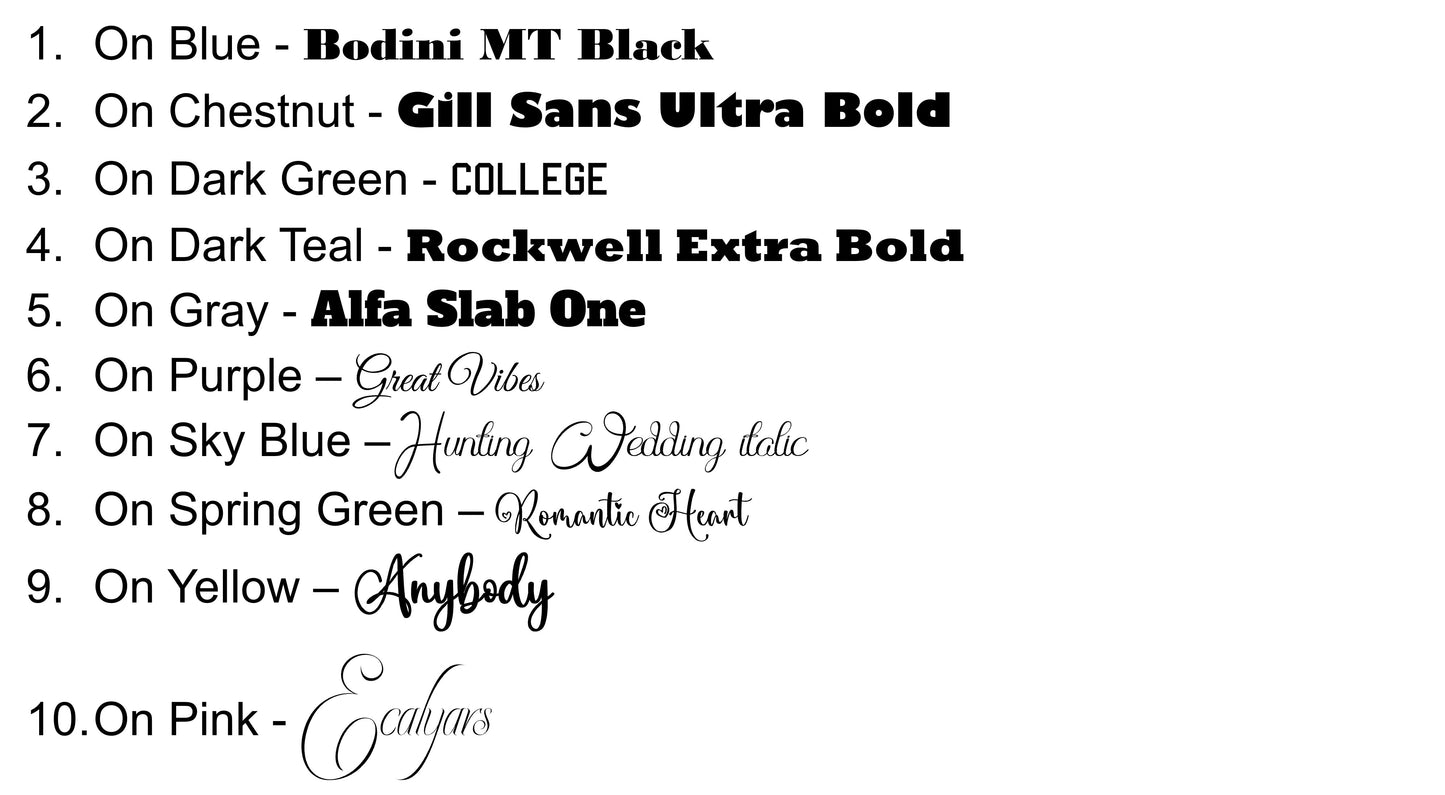 1. On Blue - Bodini MT Black
2. On Chestnut - Gill Sans Ultra Bold
3. On Dark Green - COLLEGE
4. On Dark Teal - Rockwell Extra Bold
5. On Gray - Alfa Slab One
6. On Purple – Great Vibes
7. On Sky Blue – Hunting Wedding italic
8. On Spring Green – Romantic Heart
9. On Yellow – Anybody
10. On Pink - Ecalyars